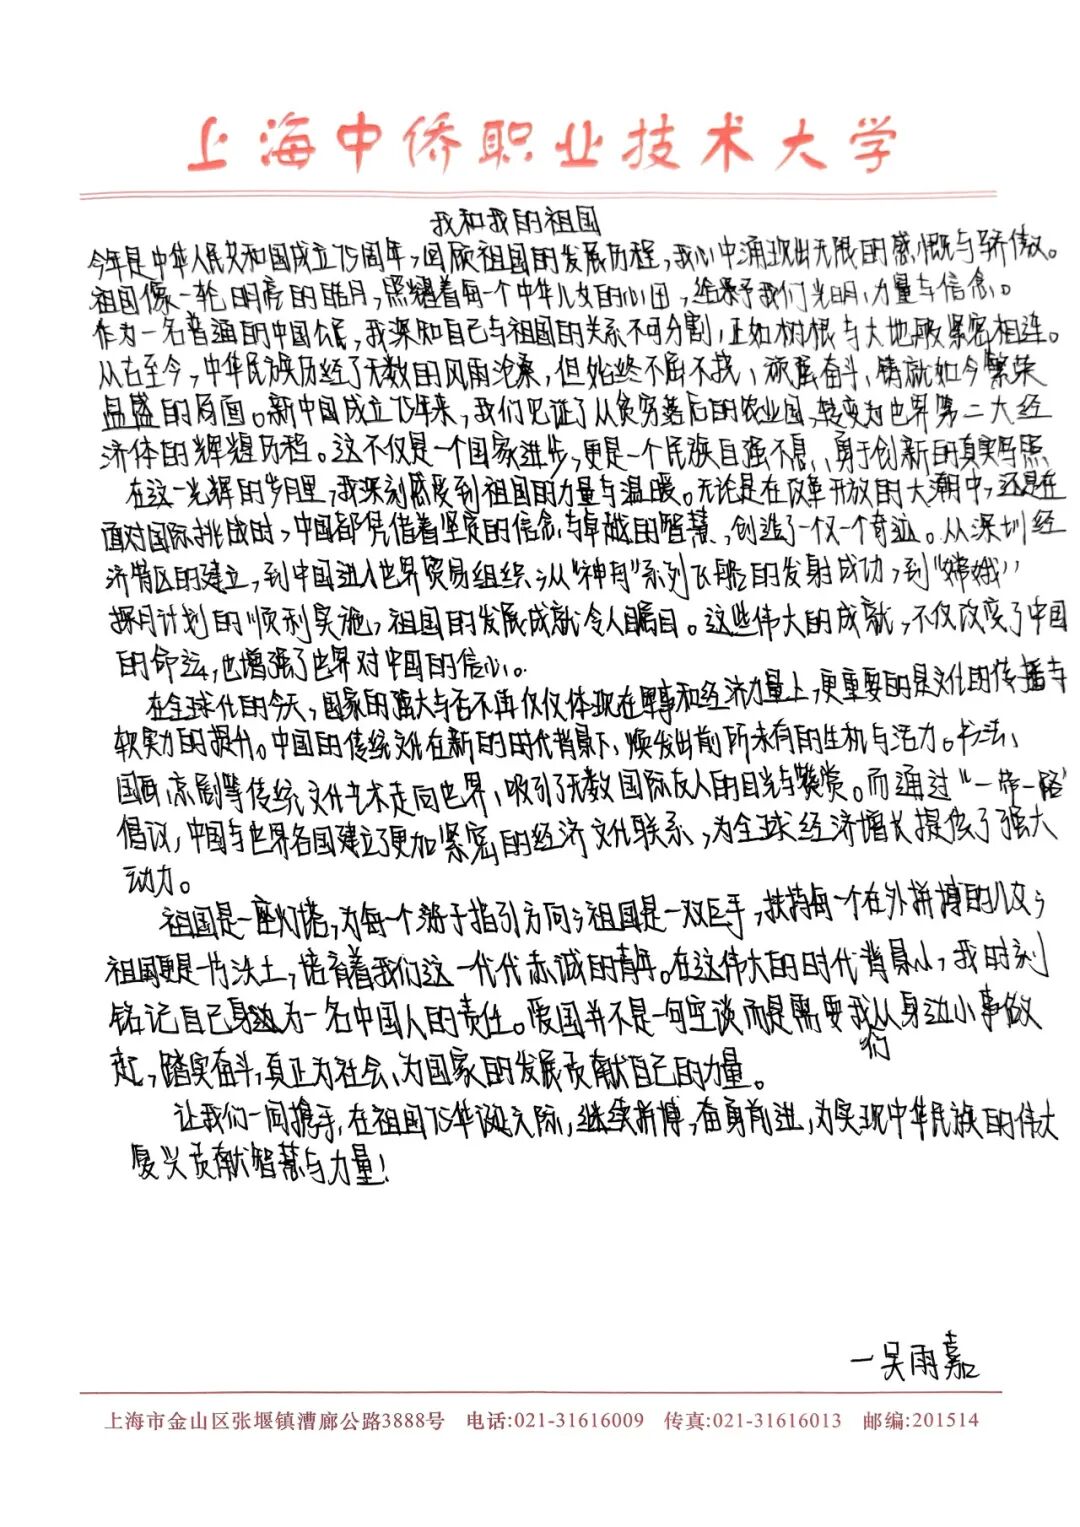 上海中侨职业技术大学
我和我的祖国
今年是中华人民共和国成立75周年，回顾祖国的发展历程，我心中涌现出无限的感慨与骄傲。
祖国像一轮明亮的皓月，照耀着每一个中华儿女的心田，给予我们光明、力量与信念。
作为一名普通的中国公民，我深知自己与祖国的关系不可分割，正如树根与大地般紧密相连。
从古至今，中华民族历经了无数的风雨沧桑，但始终不屈不挠、顽强奋斗，铸就如今繁荣
昌盛的局面。新中国成立75年来，我们见证了从贫穷落后的农业国，转变为世界第二大经
济体的辉煌历程。这不仅是一个国家进步，更是一个民族自强不息、勇于创新的真实写照
在这一光辉的岁月里，我深刻感受到祖国的力量与温暖。无论是在改革开放的大潮中，还是在
面对国际挑战时，中国都凭借着坚定的信念与卓越的智慧，创造了一仅一个奇迹。从深圳经
济特区的建立，到中国进入世界贸易组织；从“神舟”系列飞船的发射成功，到“嫦娥”
探月计划的顺利实施，祖国的发展成就令人瞩目。这些伟大的成就，不仅改变了中国
的命运，也增强了世界对中国的信心。
在全球化的今天，国家的强大与否不再仅仅体现在军事和经济力量上，更重要的是文化的传播与
软实力的提升。中国的传统文化在新的时代背景下，焕发出前所未有的生机与活力。书法、
国画、京剧等传统文化艺术走向世界，吸引了无数国际友人的目光与赞赏。而通过“一带一路”
倡议，中国与世界各国建立了更加紧密的经济文化联系，为全球经济增长提供了强大
动力。
祖国是一座灯塔，为每一个游子指引方向；祖国是一双巨手，扶持每一个在外拼搏的儿女；
祖国更是一片沃土，培育着我们这一代代赤诚的青年。在这伟大的时代背景小，我时刻
铭记自己身边为一名中国人的责任。爱国并不是一句空谈而是需要我们从身边小事做
起，踏实奋斗，真正为社会、为国家的发展贡献自己的力量。
让我们一同携手，在祖国75华诞之际，继续拼搏，奋勇前进，为实现中华民族的伟大
复兴贡献智慧与力量！
一吴雨嘉
上海市金山区张堰镇漕廊公路3888号 电话:021-31616009 传真:021-31616013 邮编:201514